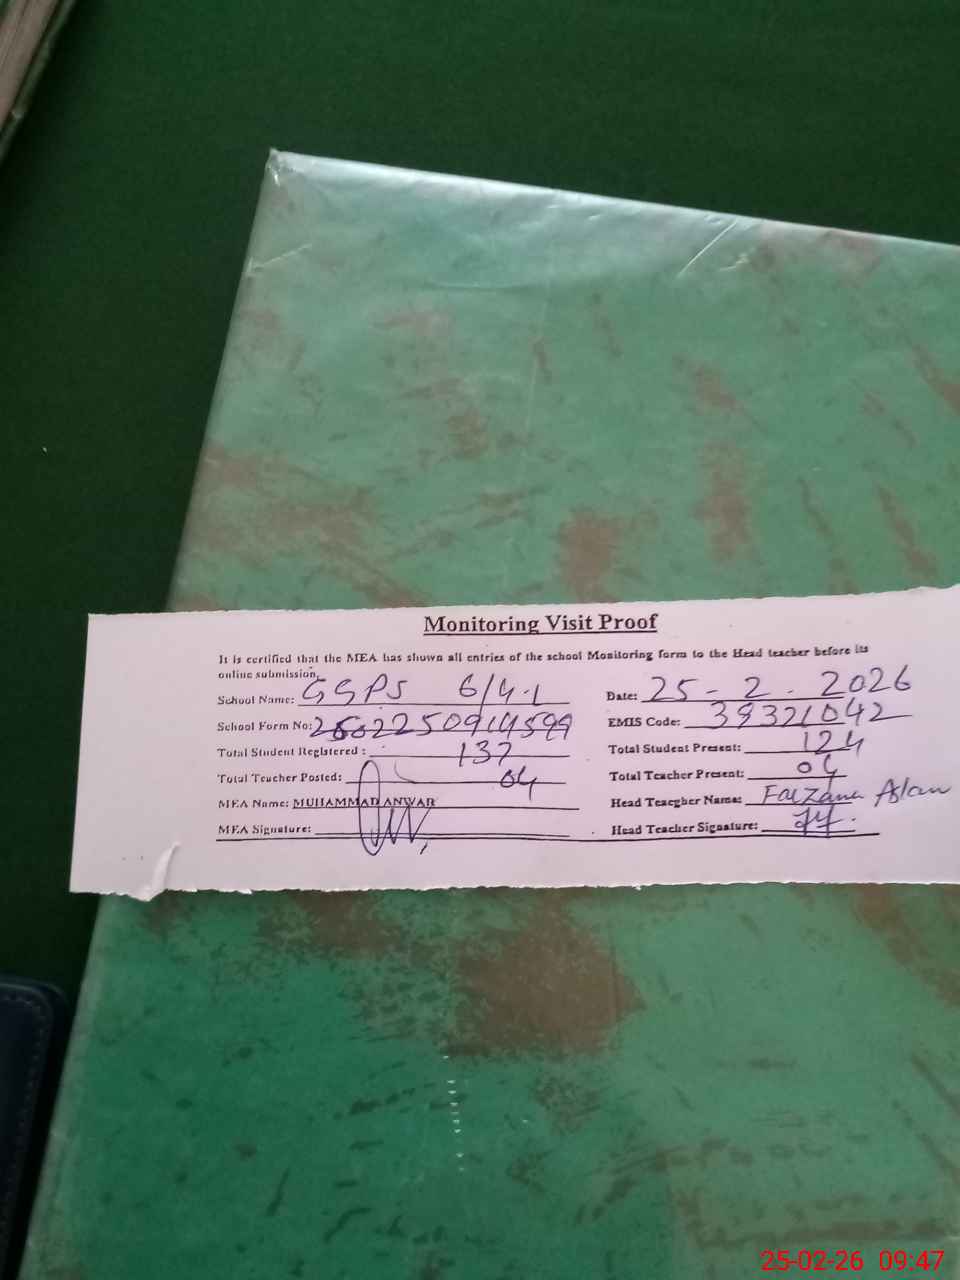 Monitoring Visit Proof
It is certified that the MEA has shown all entries of the school Monitoring form to the Head teacher before its
online submission.
School Name: GGPS 6/4-L Date: 25-2-2026
School Form No: EMIS Code: 39321042
Total Student Registered : 137 Total Student Present: 124
Total Teacher Posted: 04 Total Teacher Present: 04
MEA Name: MUHAMMAD ANWAR Head Teacgher Name: Faizana Aslam
MEA Signature: Head Teacher Signature:
25-02-26 09:47